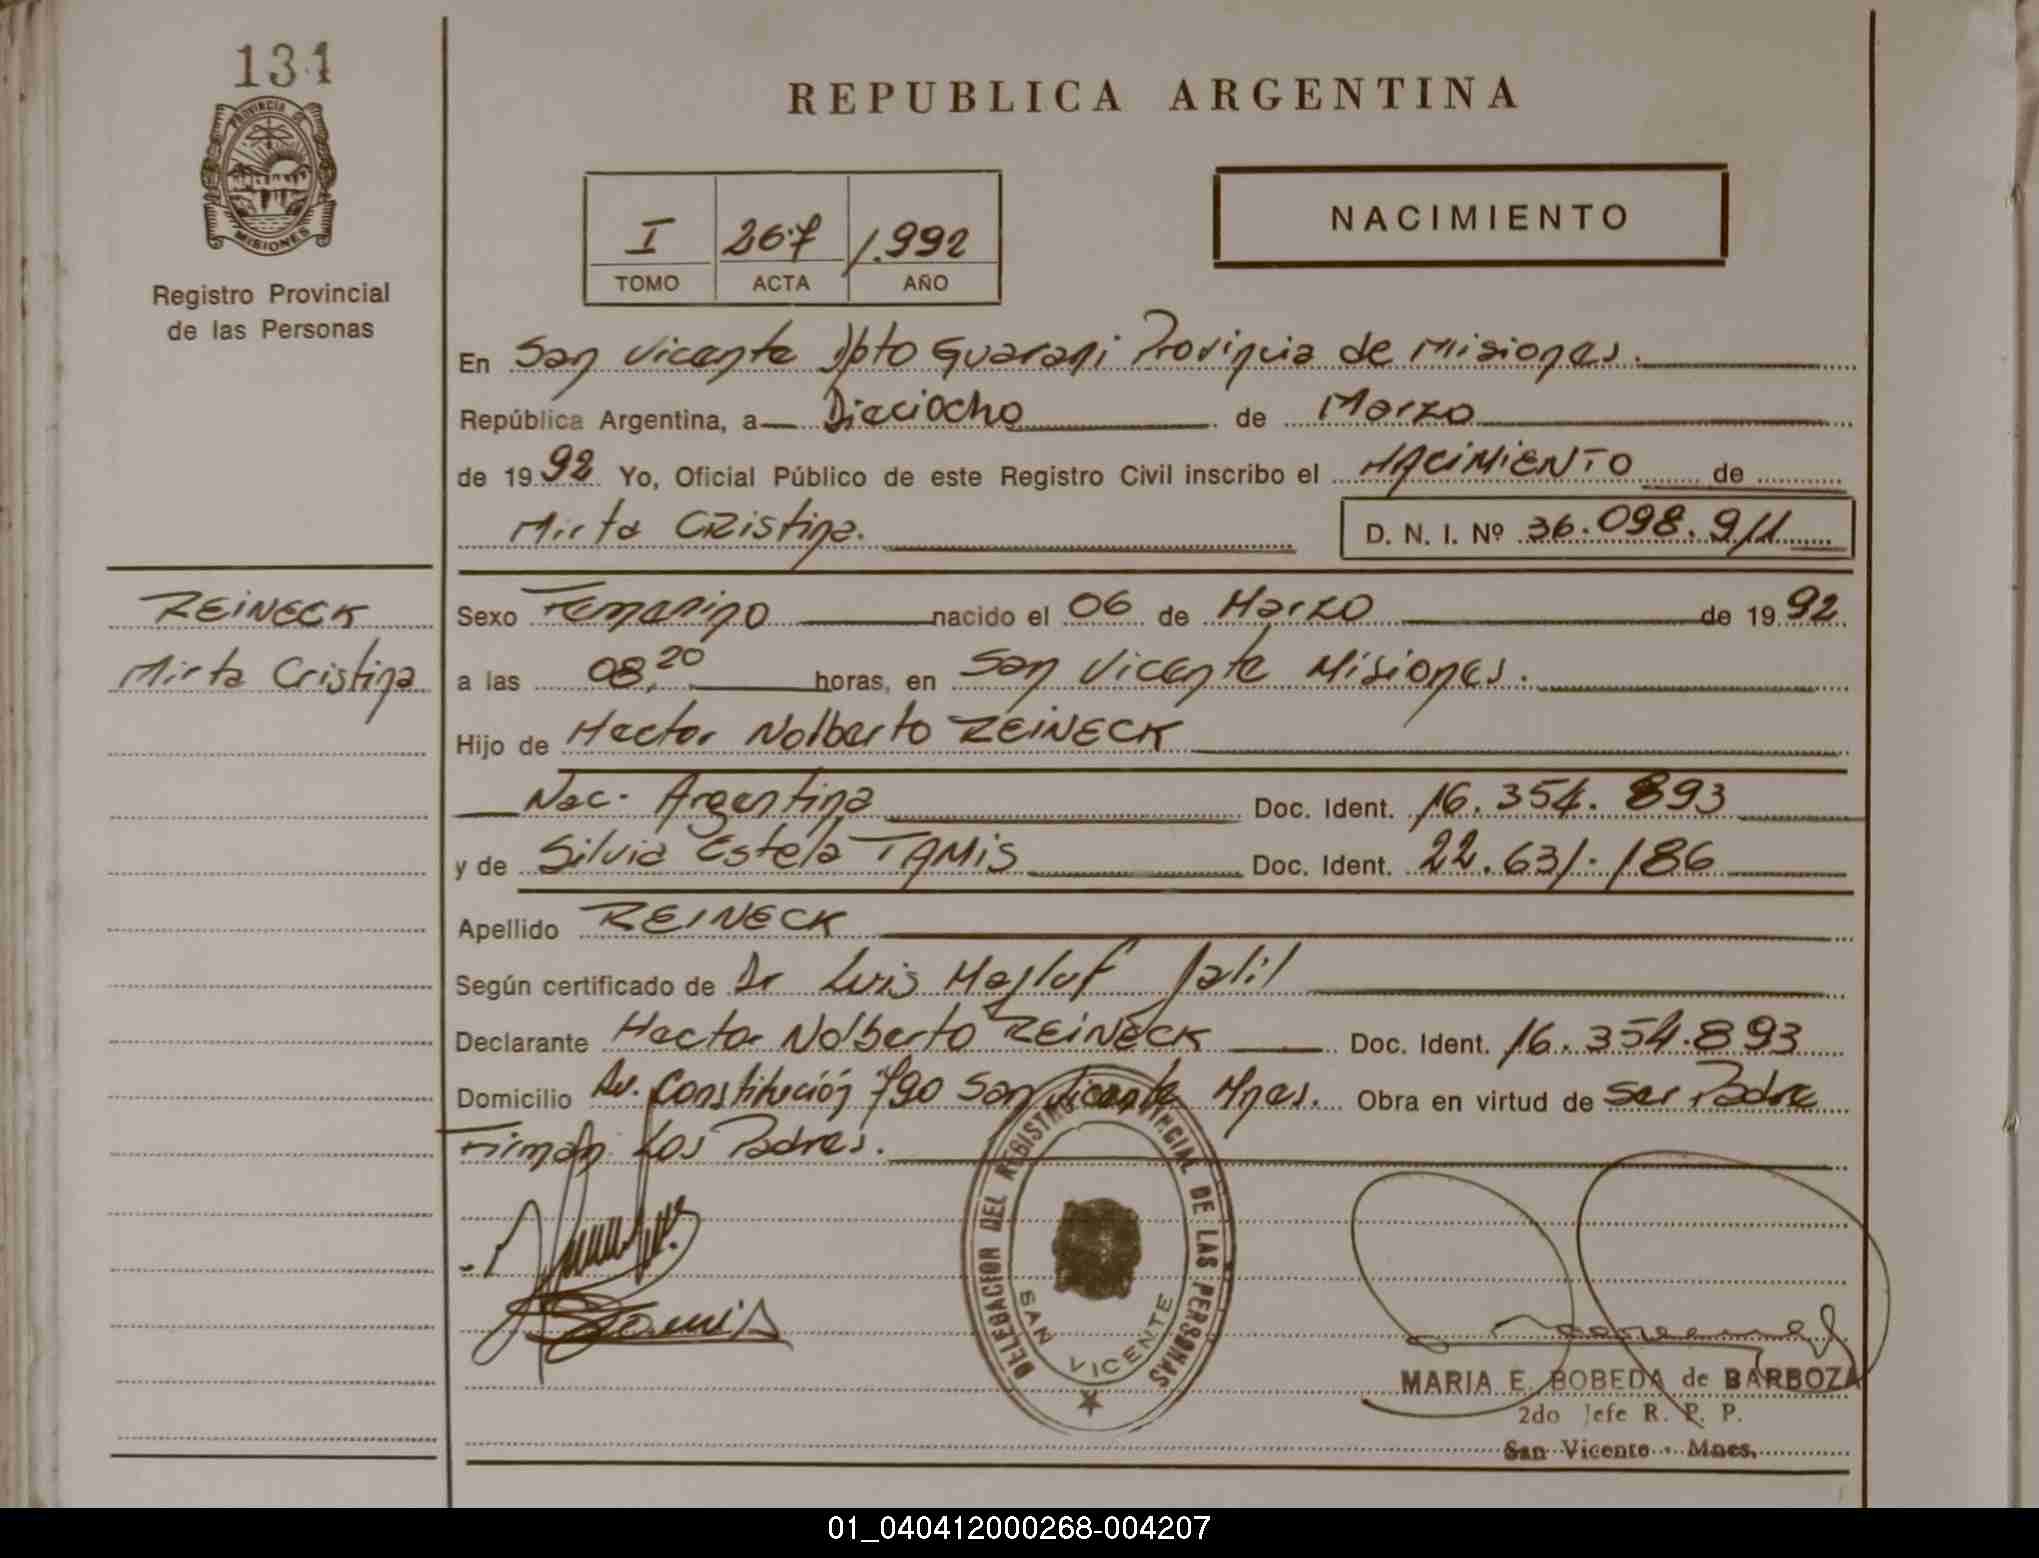 131
PROVINCIA DE
MISIONES
Registro Provincial
de las Personas
REPUBLICA ARGENTINA
I 267 1.992
TOMO ACTA AÑO
NACIMIENTO
En San Vicente Dpto Guarani Provincia de Misiones.
República Argentina, a Dieciocho de Marzo
de 1992 Yo, Oficial Público de este Registro Civil inscribo el NACIMIENTO de
Mirta Cristina. D. N. I. Nº 36.098.911
REINECK
Mirta Cristina
Sexo Femenino nacido el 06 de Marzo de 1992
a las 08,20 horas, en San Vicente Misiones.
Hijo de Hector Nolberto REINECK
Nac. Argentina Doc. Ident. 16.354.893
y de Silvia Estela TAMIS Doc. Ident. 22.631.186
Apellido REINECK
Según certificado de Dr Luis Majluf Jalil
Declarante Hector Nolberto REINECK Doc. Ident. 16.354.893
Domicilio Av. Constitución 790 San Vicente Mnes. Obra en virtud de ser Padre
Firman Los Padres.
DELEGACION DEL REGISTRO PROVINCIAL DE LAS PERSONAS
SAN VICENTE
MARIA E. BOBEDA de BARBOZA
2do Jefe R. P. P.
San Vicente - Mnes.
01_040412000268-004207